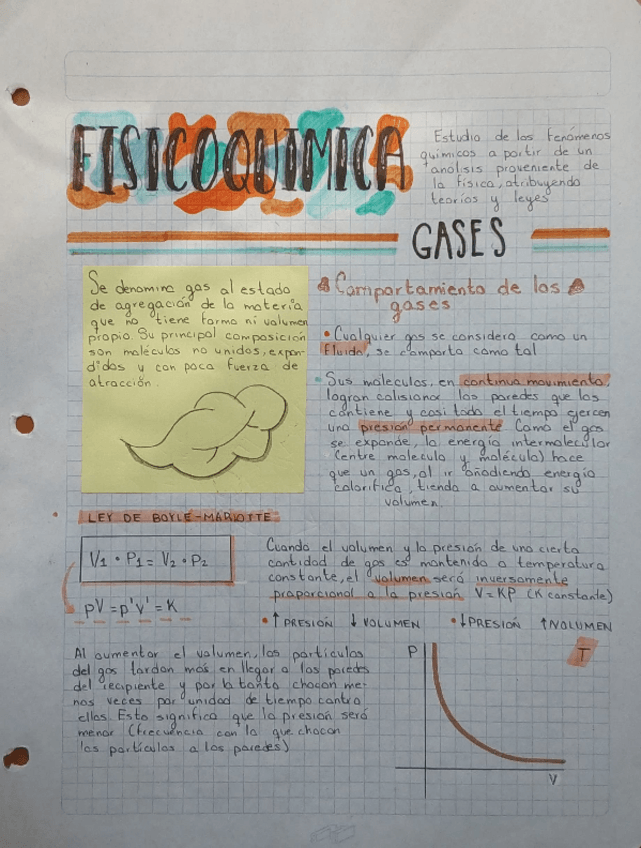 FISICOQUIMICA
Estudio de los fenómenos
químicos a partir de un
análisis proveniente de
la física, atribuyendo
teorías y leyes
GASES
Se denomina gas al estado
de agregación de la materia
que no tiene forma ni volumen
propio. Su principal composición
son moléculas no unidas, expan-
didas y con poca fuerza de
atracción.
Comportamiento de los
gases
• Cualquier gas se considera como un
fluido, se comporta como tal
• Sus moleculas, en continuo movimiento,
logran colisionar las paredes que los
contiene y casi todo el tiempo ejercen
una presión permanente. Como el gas
se expande, la energía intermolecular
(entre molecula y molécula) hace
que un gas, al ir añadiendo energía
calorifica, tienda a aumentar su
volumen.
• LEY DE BOYLE-MARIOTTE
V1 • P1 = V2 • P2
pV = p'V' = K
Cuando el volumen y la presión de una cierta
cantidad de gas es mantenida a temperatura
constante, el volumen será inversamente
proporcional a la presión V=KP (K constante)
• ↑ PRESIÓN ↓ VOLUMEN • ↓ PRESIÓN ↑ VOLUMEN
Al aumentar el volumen, las partículas
del gas tardan más en llegar a las paredes
del recipiente y por lo tanto chocan me-
nos veces por unidad de tiempo contra
ellas. Esto significa que la presión será
menor (frecuencia con la que chocan
las partículas a las paredes)
P
T
V